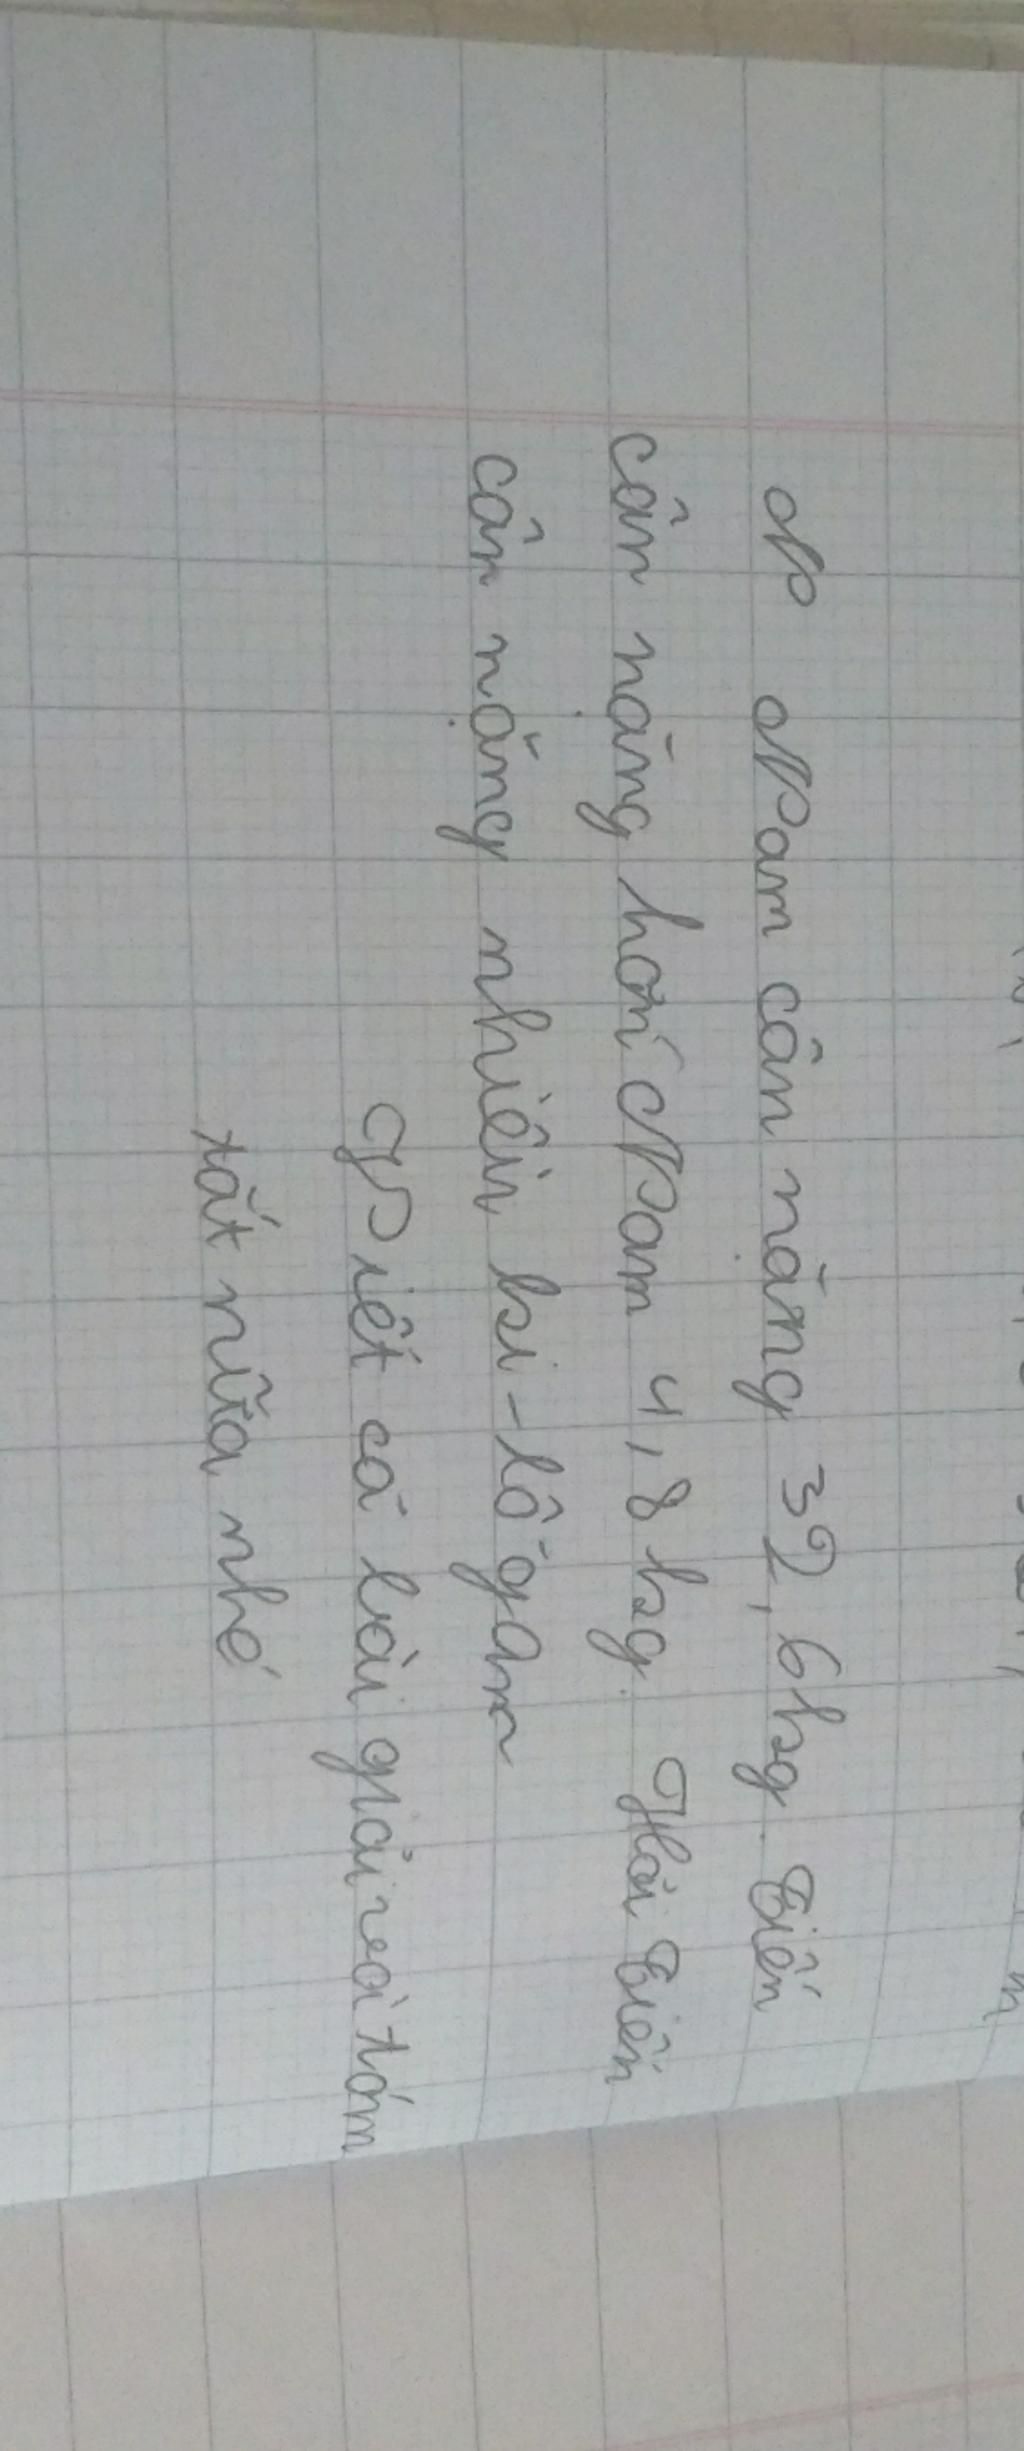 Nam cân nặng 32,6kg. Tiến
cân nặng hơn Nam 4,8kg. Hỏi Tiến
cân nặng nhiêu ki-lô-gam
Viết cả lời giải với tóm
tắt nữa nhé